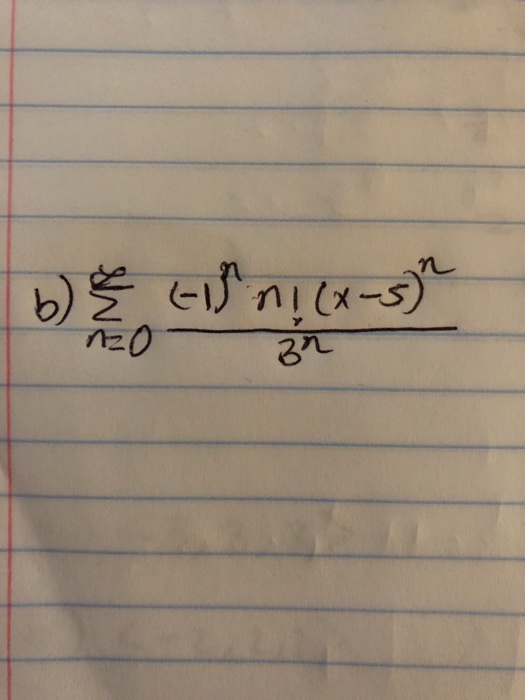 b) ∞ Σ n=0 (-1)^n n! (x-5)^n
3^n